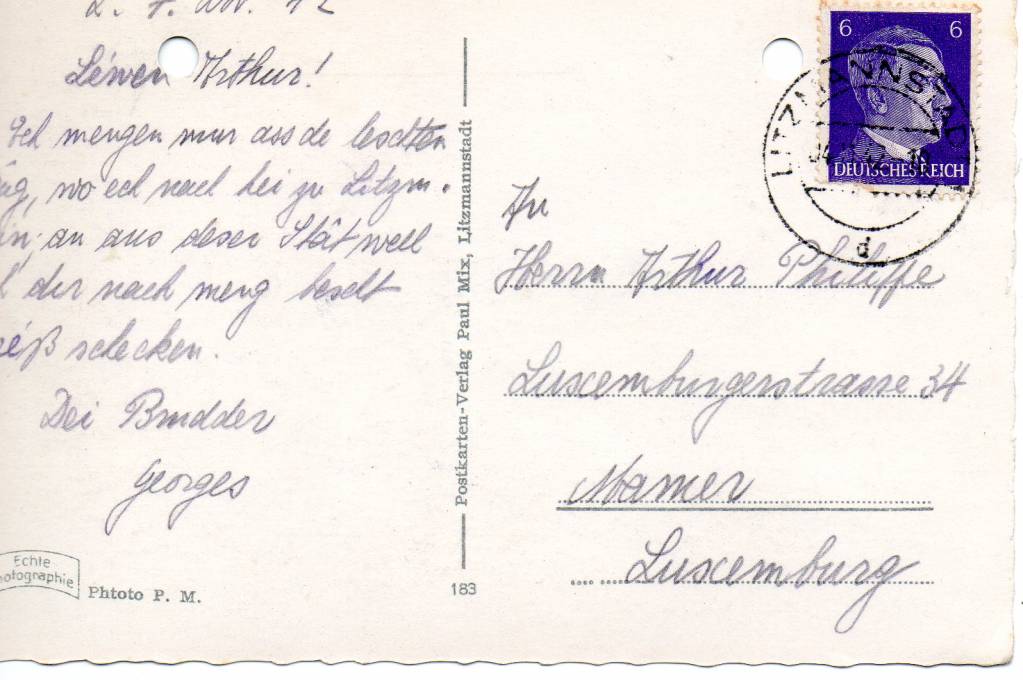 L. 7. Nov. 42
Léwen Arthur!
Ech mengen mur ass de leschten
wo ech nach hei zu Litzm.
an aus deser Stât well
dir nach meng bescht
schecken.
Dei Brudder
Georges
Echte
Photographie
Phtoto P. M.
183
Postkarten-Verlag Paul Mix, Litzmannstadt
6 6
DEUTSCHES REICH
LITZMANNSTADT
d
An
Herrn Arthur Philippe
Luxemburgerstrasse 34
Mamer
Luxemburg